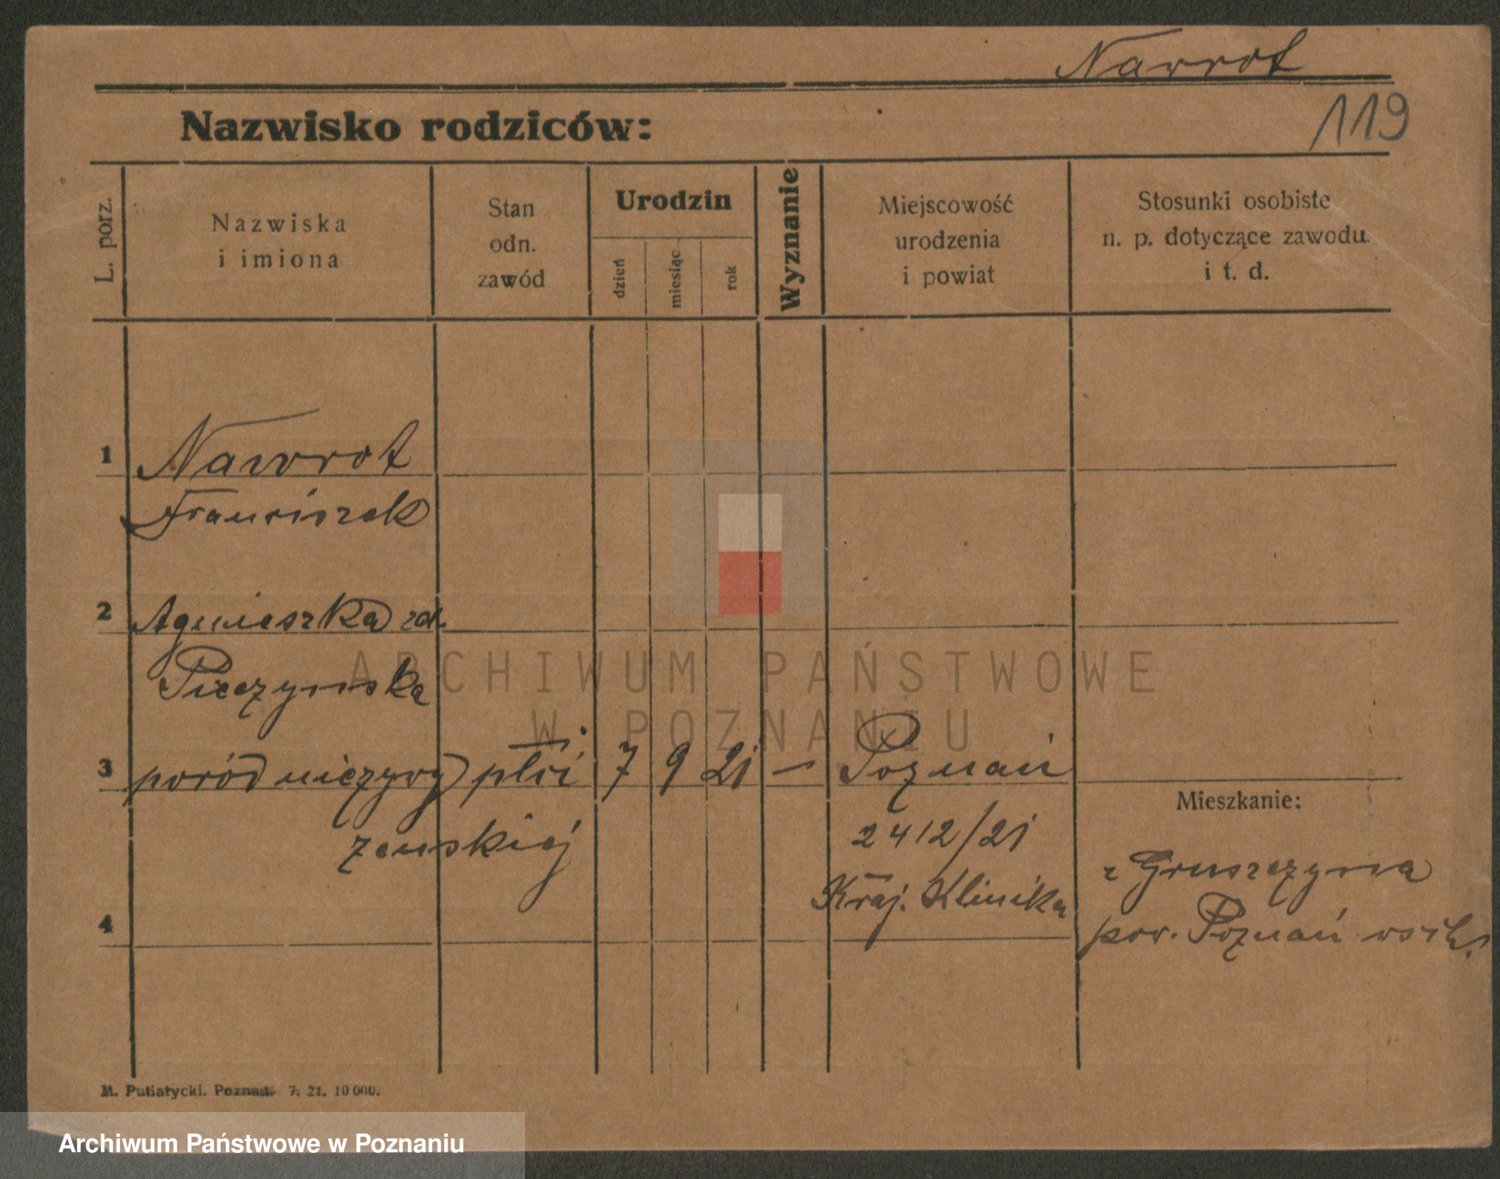 Nawrot
119
Nazwisko rodziców:
L. porz.
Nazwiska
i imiona
Stan
odn.
zawód
Urodzin
dzień
miesiąc
rok
Wyznanie
Miejscowość
urodzenia
i powiat
Stosunki osobiste
n. p. dotyczące zawodu
i t. d.
1 Nawrot
Franciszek
2 Agnieszka zd.
Pieczyńska
ARCHIWUM PAŃSTWOWE
W POZNANIU
3 poród nieżywy płci 7 9 21 — Poznań
Mieszkanie:
żeńskiej 2412/21
Kraj. Klinika
z Gruszczyna
4 pow. Poznań wsch.
M. Putiatycki. Poznań 7. 21. 10 000.
Archiwum Państwowe w Poznaniu